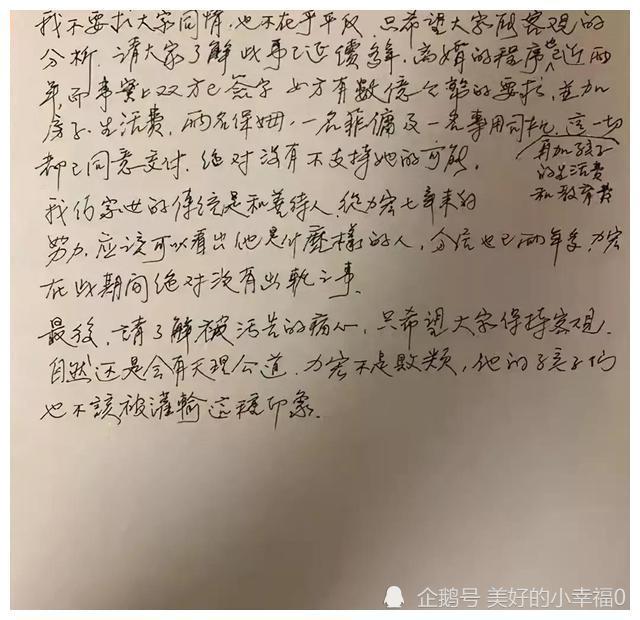 我不要求大家同情,也不在乎平反,只希望大家能客观的
分析,請大家了解此事已延儇多年,离婚的程序也已近两
年,而事实上双方已簽字,女方有数億令幣的要求,並加
房子、生活費,两名保姆,一名菲傭及一名專用司机,這一切
都已同意交付,绝对没有不支持她的可能,
再加孩子
的生活费
和教育费
我们家世的傳統是和善待人,從力宏七年来的
努力,應該可以看出他是什麼樣的人,分居也已两年多,力宏
在此期间绝对没有出軌之事,
最後,請了解被污告的痛心,只希望大家保持客观,
自然还是会有天理公道,力宏不是败类,他的孩子们
也不該被灌輸這種印象.
企鹅号 美好的小幸福0